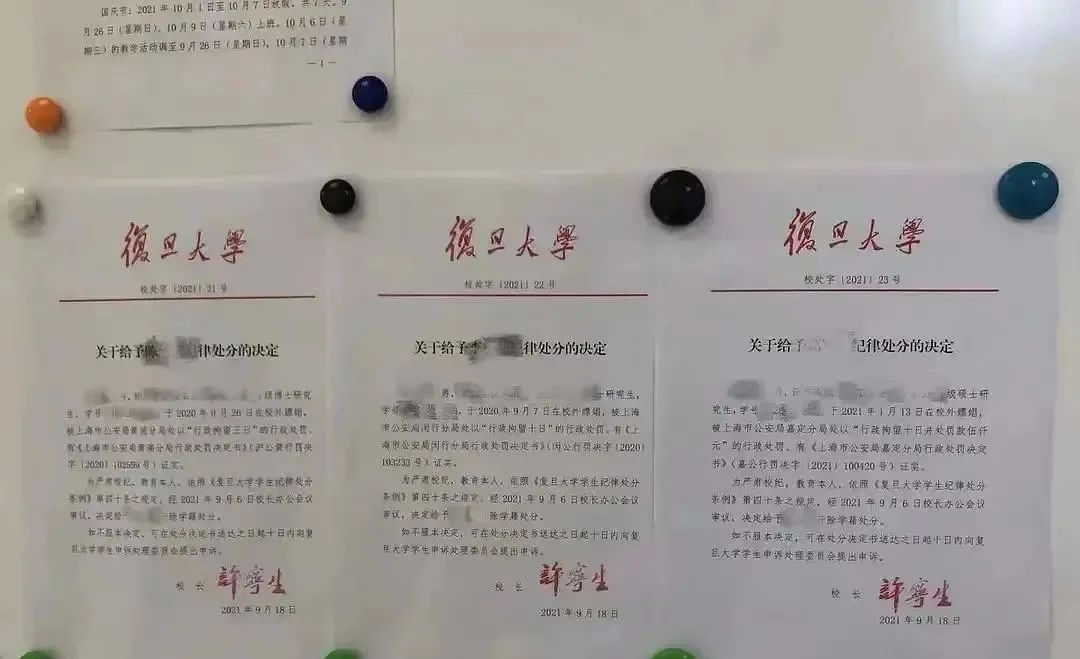 国庆节:2021年10月1日至10月7日放假,共7天。9
月26日(星期日)、10月9日(星期六)上班。10月6日(星
期三)的教学活动调至9月26日(星期日)、10月7日(星期
—1—
復旦大學
校处字〔2021〕21号
关于给予陈 律处分的决定
级博士研究
生,学号 于2020年9月26日在校外嫖娼,
被上海市公安局黄浦分局处以“行政拘留三日”的行政处罚,
有《上海市公安局黄浦分局行政处罚决定书》(沪公黄行罚决
字〔2020〕102599号)证实。
为严肃校纪,教育本人,依照《复旦大学学生纪律处分
条例》第四十条之规定,经2021年9月6日校长办公会议
审议,决定给 除学籍处分。
如不服本决定,可在处分决定书送达之日起十日内向复
旦大学学生申诉处理委员会提出申诉。
校 长 許寧生
2021年9月18日
復旦大學
校处字〔2021〕22号
关于给予李 律处分的决定
男, 士研究生,
学号 ,于2020年9月7日在校外嫖娼,被上海
市公安局闵行分局处以“行政拘留十日”的行政处罚,有《上
海市公安局闵行分局行政处罚决定书》(闵公行罚决字〔2020〕
103233号)证实。
为严肃校纪,教育本人,依照《复旦大学学生纪律处分
条例》第四十条之规定,经2021年9月6日校长办公会议
审议,决定给予 除学籍处分。
如不服本决定,可在处分决定书送达之日起十日内向复
旦大学学生申诉处理委员会提出申诉。
校 长 許寧生
2021年9月18日
復旦大學
校处字〔2021〕23号
关于给予 纪律处分的决定
级硕士研
究生,学号 于2021年1月13日在校外嫖娼,
被上海市公安局嘉定分局处以“行政拘留十日并处罚款伍仟
元”的行政处罚,有《上海市公安局嘉定分局行政处罚决定
书》(嘉公行罚决字〔2021〕100420号)证实。
为严肃校纪,教育本人,依照《复旦大学学生纪律处分
条例》第四十条之规定,经2021年9月6日校长办公会议
审议,决定给予 除学籍处分。
如不服本决定,可在处分决定书送达之日起十日内向复
旦大学学生申诉处理委员会提出申诉。
校 长 許寧生
2021年9月18日